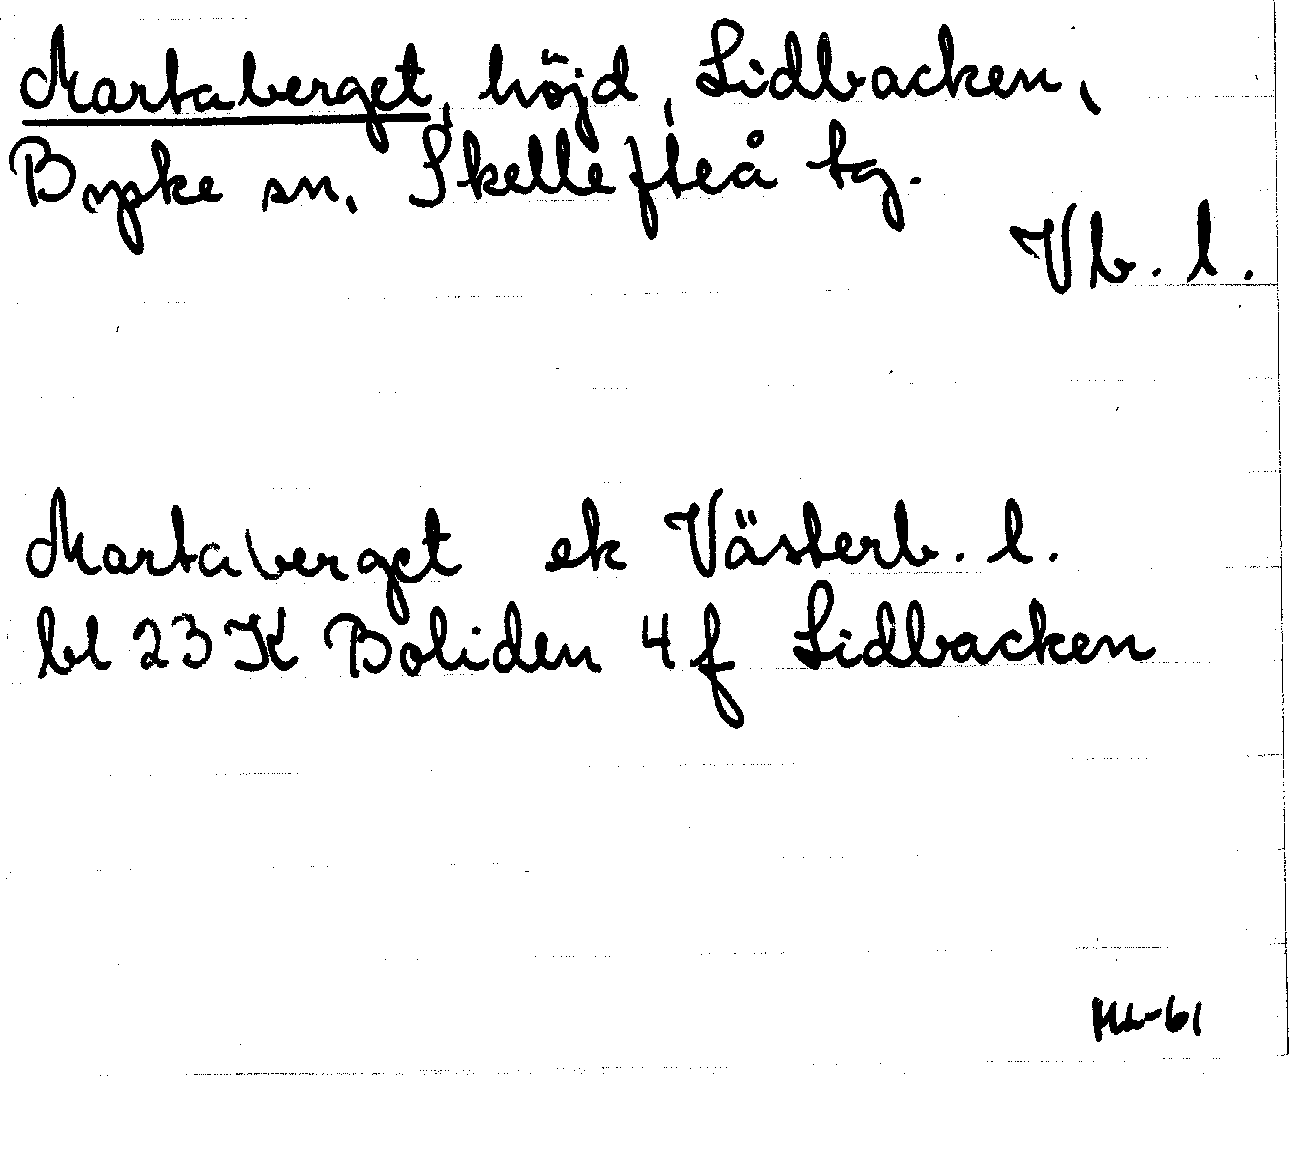 Martaberget, höjd, Lidbacken,
Byske sn, Skellefteå tg.
Vb. l.
Martaberget ek Västerb. l.
bl 23 K Boliden 4 f Lidbacken